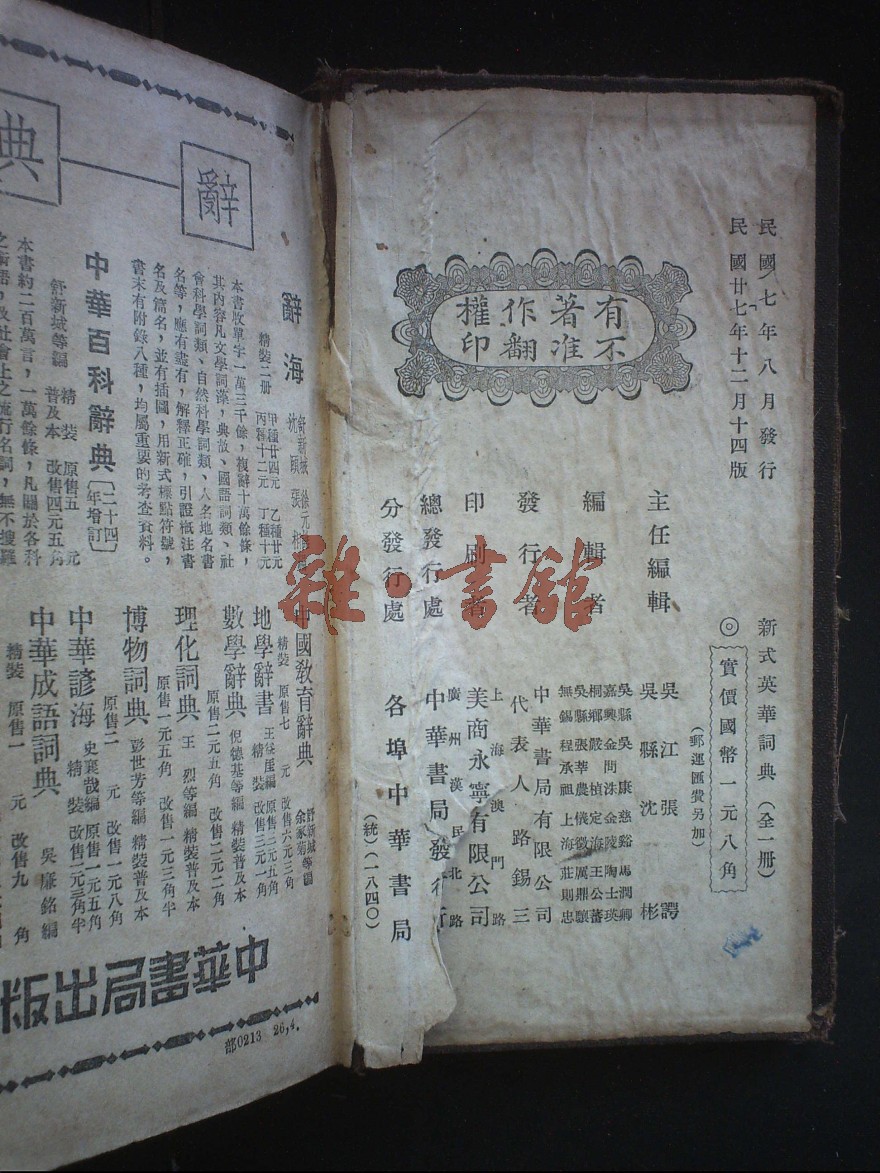 民國七年八月發行
民國廿七年十二月十四版
有著作權
不准翻印
新式英華詞典(全一冊)
◎實價國幣一元八角
(郵運匯費另加)
主任編輯
吳江張諤
吳縣沈彬
編輯者
吳縣吳康 慈谿馬潤卿
嘉興金問洙 金陵陶士瑛
桐鄉嚴楨 定海王公蕃
吳縣張莘農 儀徵厲鼎驤
無錫程承祖 上海莊則忠
發行者
中華書局有限公司
代表人 路錫三
印刷者
上海澳門路
美商永寧有限公司
總發行處
廣州漢民北路
中華書局發行所
分發行處
各埠中華書局
(統)(一八四〇)
雜·書館
辭
典
辭海
精裝二册
甲種廿四元 乙種廿元
丙種十二元 丁種十元
本書收單字一萬三千餘,複辭十萬餘條,
其內容凡文學詞藻,典故、國語詞類、社
會科學詞類、自然科學詞類、人名地名書
名等,應有盡有,解釋正確,引證槪注書
名及篇名,並有插圖,用新式標點符號,
書末有附錄八種,均屬重要的考查資料。
中華百科辭典〔二十四年增訂〕
舒新城等編
精裝 原售五元
普及本 改售四元五角
本書約二百萬言,一萬餘條,凡關於各科
之術語,及社會上之流行名詞,無不搜羅
中國敎育辭典
舒新城等編
余家菊
精裝 原售七元 改售六元三角
地學辭書
王益厓編 原售二元五角
精裝 改售三元一角
數學辭典
倪德基等編 精裝普及本
原售二元五角 改售二元二角
理化詞典
王烈等編 精裝普及本
原售一元五角 改售一元三角半
博物詞典
彭世芳等編 精裝普及本
原售二元 改售一元八角
中華諺海
史襄哉編 原售一元五角
精裝 改售一元三角半
中華成語詞典
吳廉銘編
精裝 原售一元 改售九角
中華書局出版
部0213 26,4.